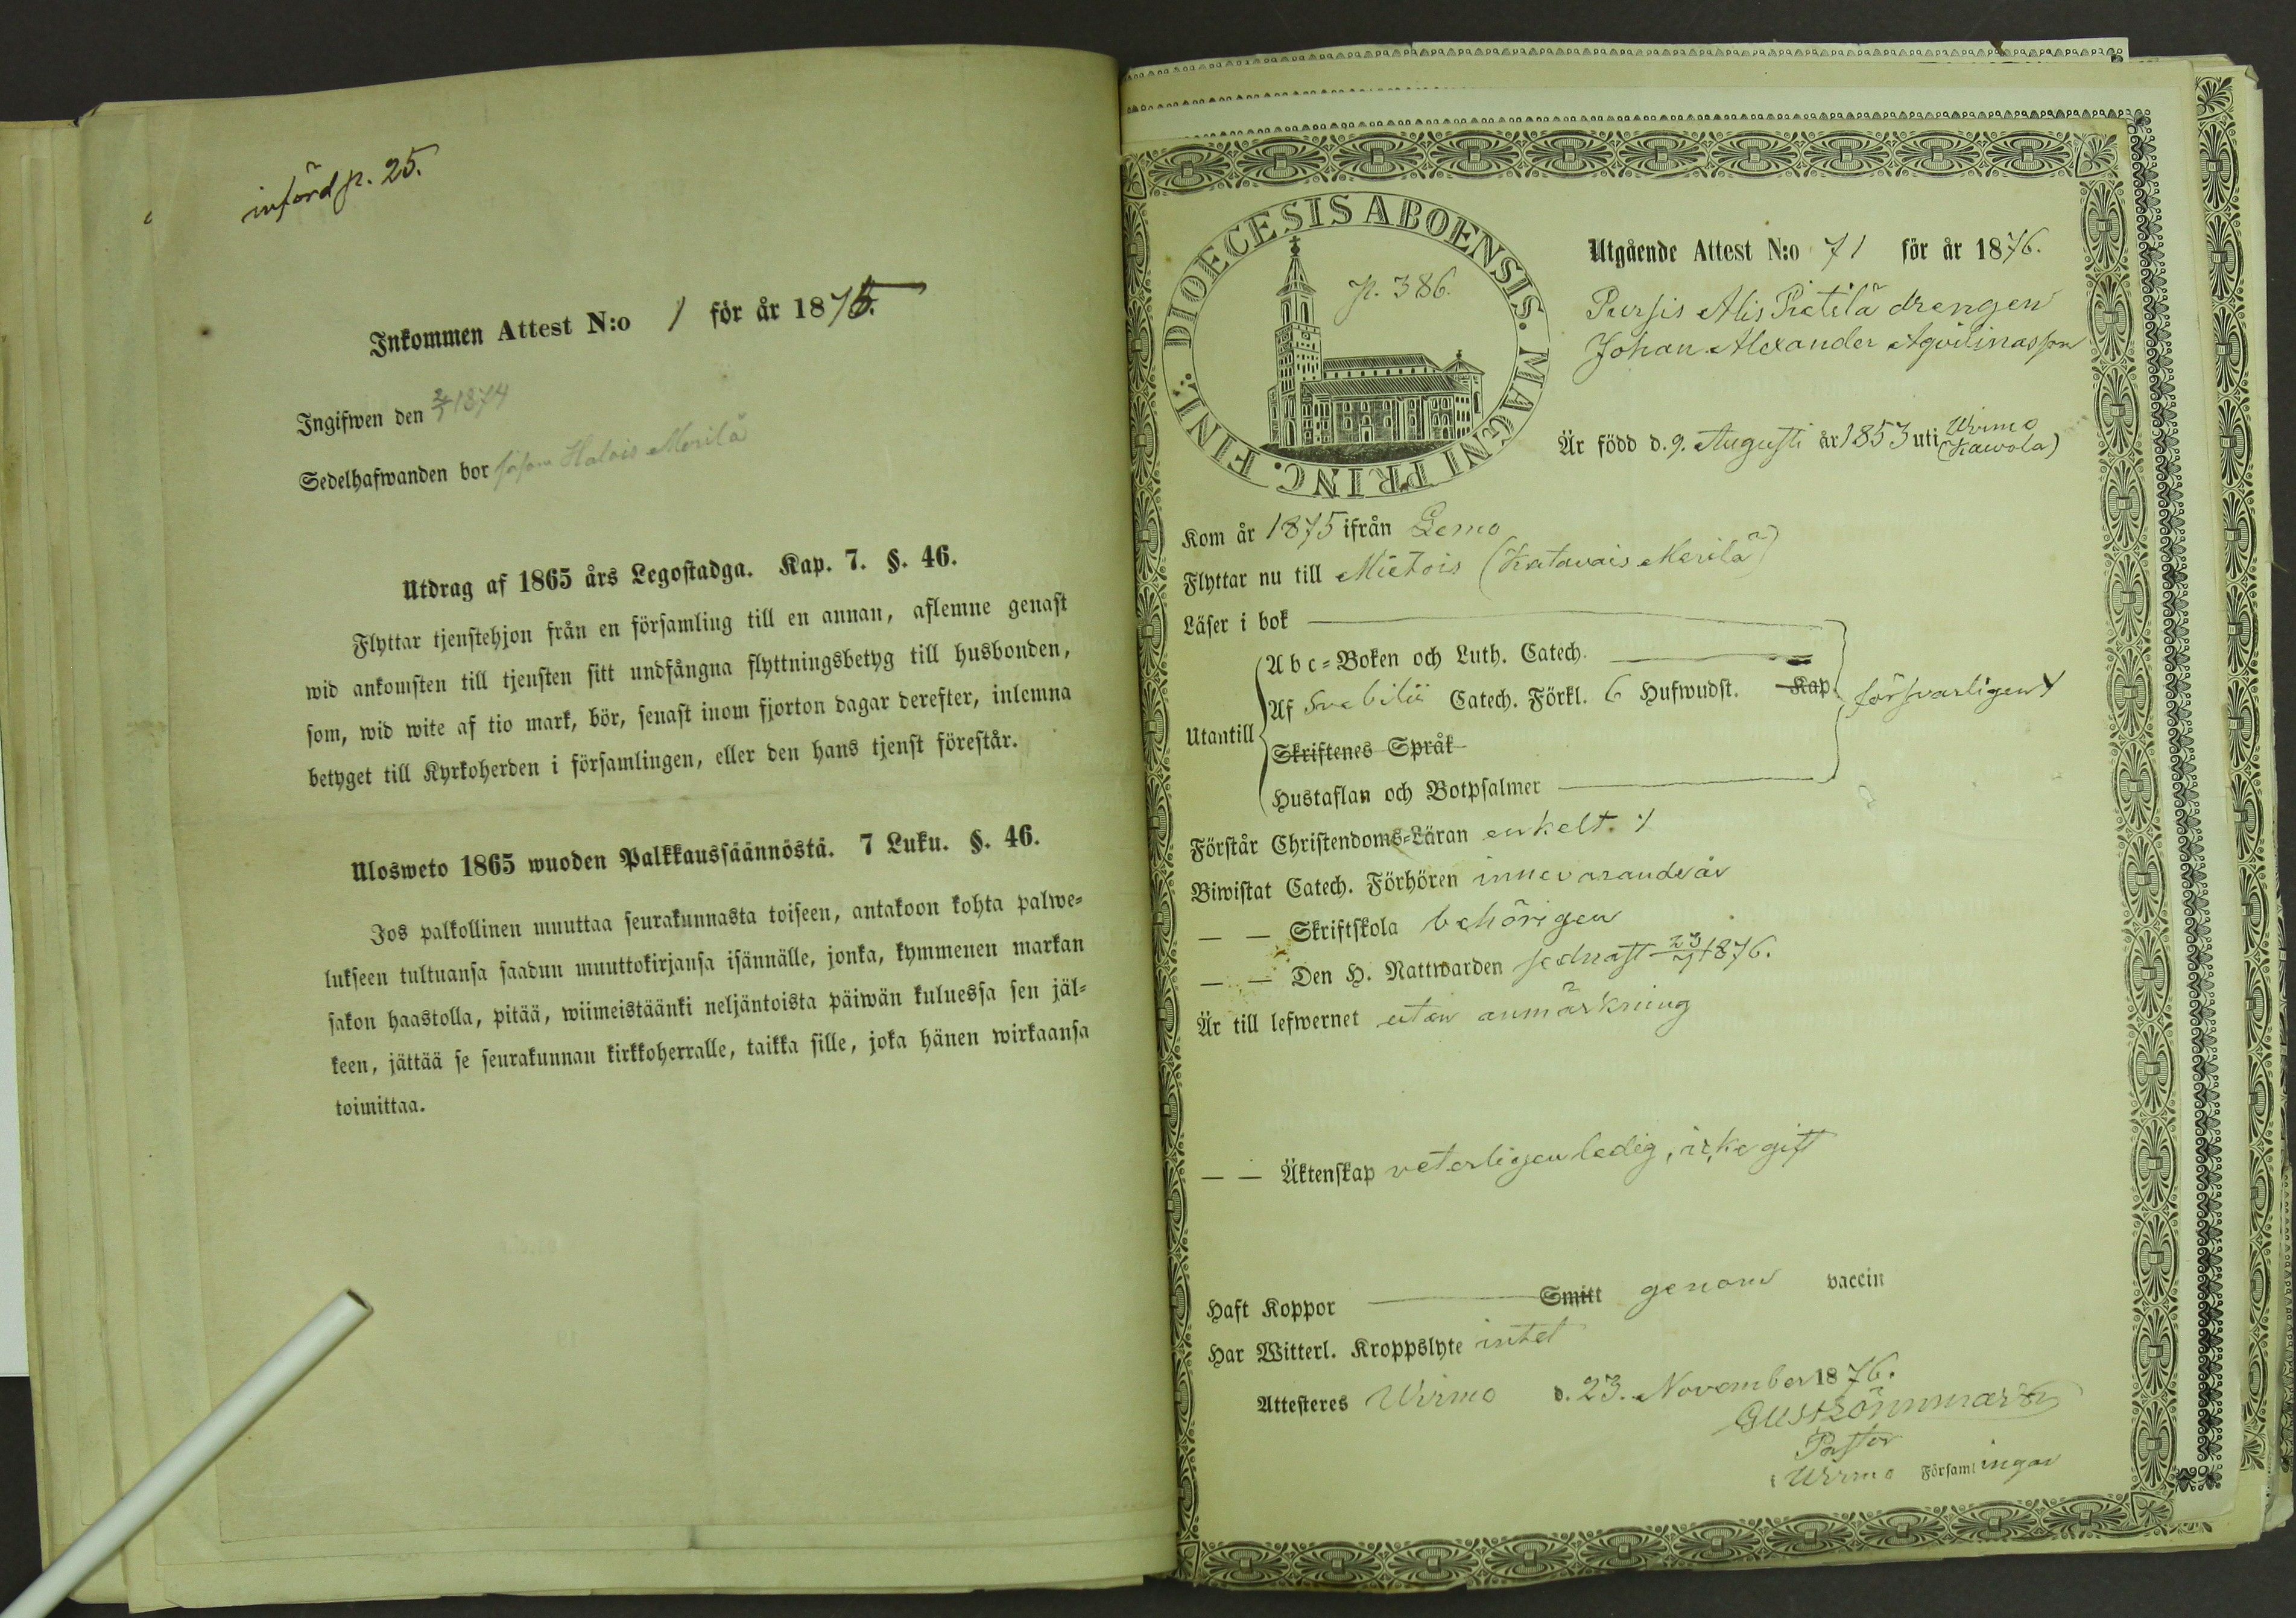 införd p. 25.
Inkommen Attest N:o 1 för år 1875.
Ingifwen den 2/1 1874
Sedelhafwanden bor Halois Merilä
Utdrag af 1865 års Legostadga. Kap. 7. §. 46.
Flyttar tjenstehjon från en församling till en annan, aflemne genast
wid ankomsten till tjensten sitt undfångna flyttningsbetyg till husbonden,
som, wid wite af tio mark, bör, senast inom fjorton dagar derefter, inlemna
betyget till Kyrkoherden i församlingen, eller den hans tjenst förestår.
Ulosweto 1865 wuoden Palkkaussäännöstä. 7 Luku. §. 46.
Jos palkollinen muuttaa seurakunnasta toiseen, antakoon kohta palwe-
lukseen tultuansa saadun muuttokirjansa isännälle, jonka, kymmenen markan
sakon haastolla, pitää, wiimeistäänki neljäntoista päiwän kuluessa sen jäl-
keen, jättää se seurakunnan kirkkoherralle, taikka sille, joka hänen wirkaansa
toimittaa.
DIOECESIS ABOENSIS. MAGNI PRINC. FINL.
p. 386.
Utgående Attest N:o 71 för år 1876.
Pursis Alis Pietilä drengen
Johan Alexander Agvilinasson
Är född d. 9. Augusti år 1853 uti Wirmo
(Kawola)
Kom år 1875 ifrån Lemo
Flyttar nu till Mietois (Katavais Merilä)
Läser i bok
Abc-Boken och Luth. Catech.
Utantill Af Svebilii Catech. Förkl. 6 Hufwudst. Kap. försvarligen
Skriftenes Språk
Hustaflan och Botpsalmer
Förstår Christendoms-Läran enkelt.
Biwistat Catech. Förhören innevarande år
— — Skriftskola behörigen
— — Den H. Nattwarden sednast 23/7 1876.
Är till lefwernet utan anmärkning
— — Äktenskap veterligen ledig, icke gift
Haft Koppor Smitt genom vaccin
Har Witterl. Kroppslyte intet
Attesteres Wirmo d. 23. November 1876.
Pastor
i Wirmo Församlingar